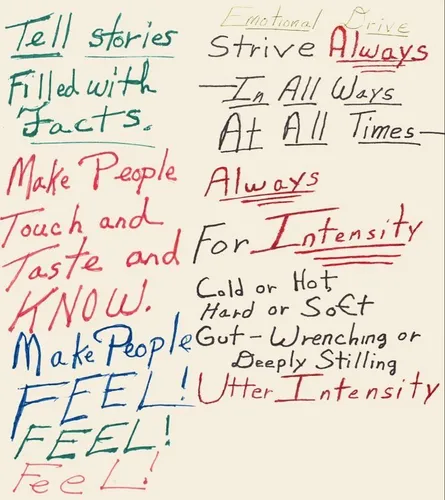 Tell stories
Filled with
Facts.
Make People
Touch and
Taste and
KNOW.
Make People
FEEL!
FEEL!
FeeL!
Emotional Drive
Strive Always
—In All Ways
At All Times—
Always
For Intensity
Cold or Hot,
Hard or Soft
Gut-Wrenching or
Deeply Stilling
Utter Intensity